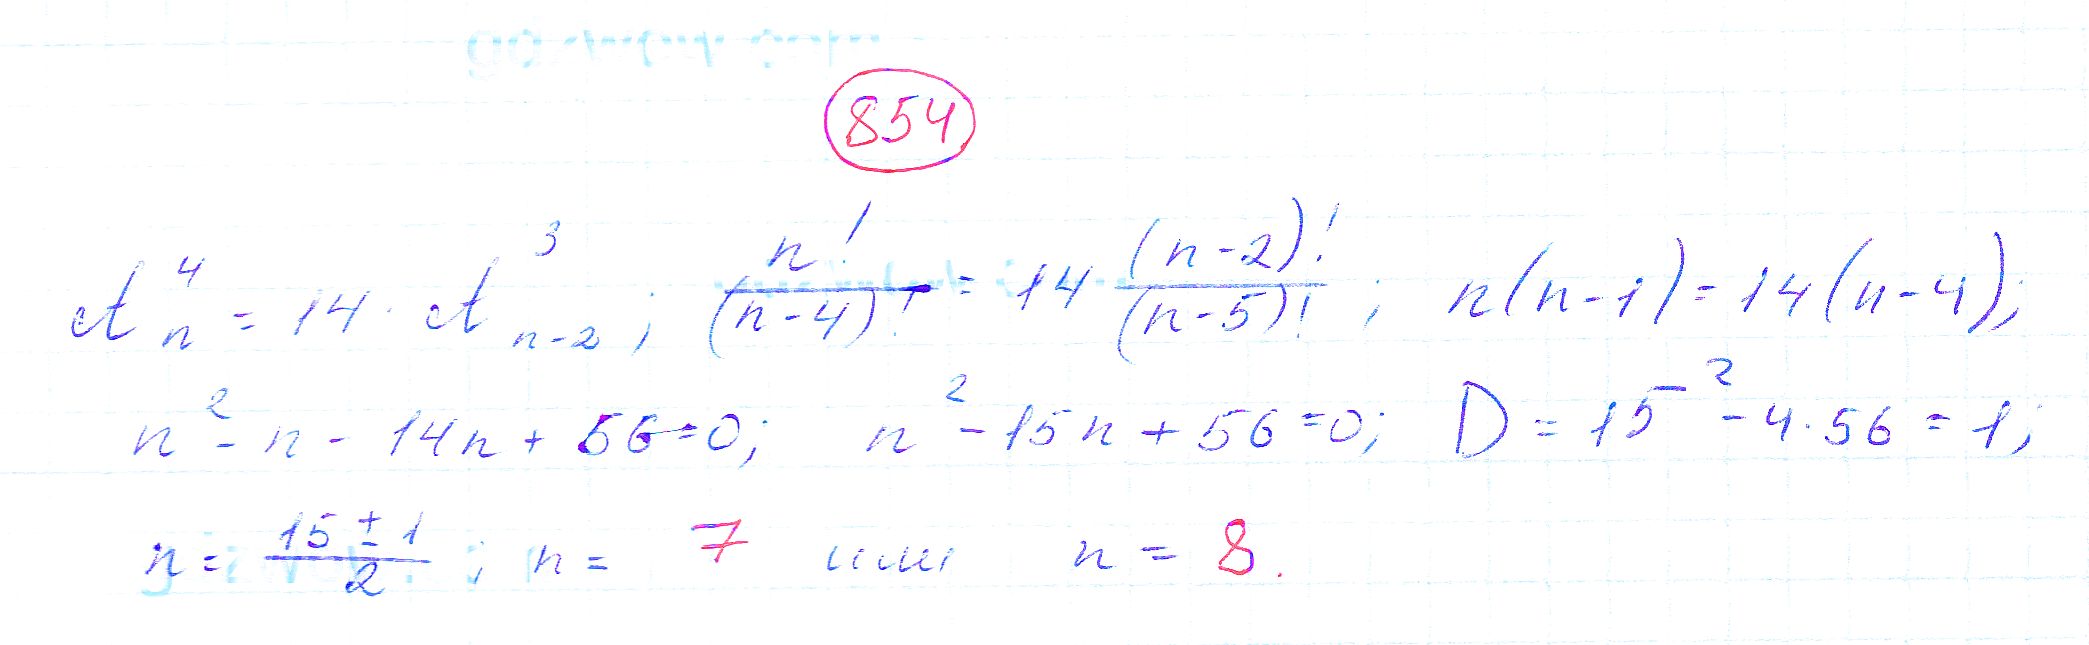 854
A_n^4 = 14 · A_{n-2}^3; n!/(n-4)! = 14 (n-2)!/(n-5)!; n(n-1) = 14(n-4);
n² - n - 14n + 56 = 0; n² - 15n + 56 = 0; D = 15² - 4·56 = 1;
n = (15 ± 1)/2; n = 7 или n = 8.